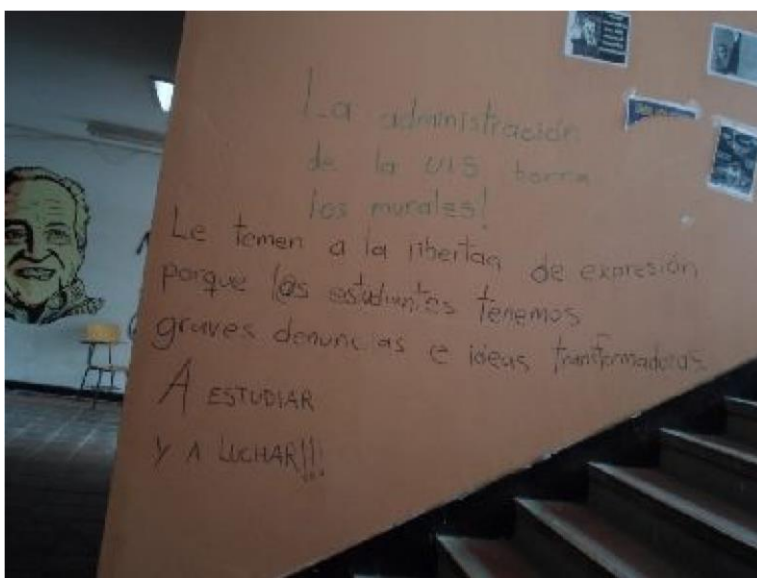 La administración
de la UIS borra
los murales!
Le temen a la libertad de expresión
porque l@s estudiantes tenemos
graves denuncias e ideas transformadoras
A ESTUDIAR
Y A LUCHAR!!!